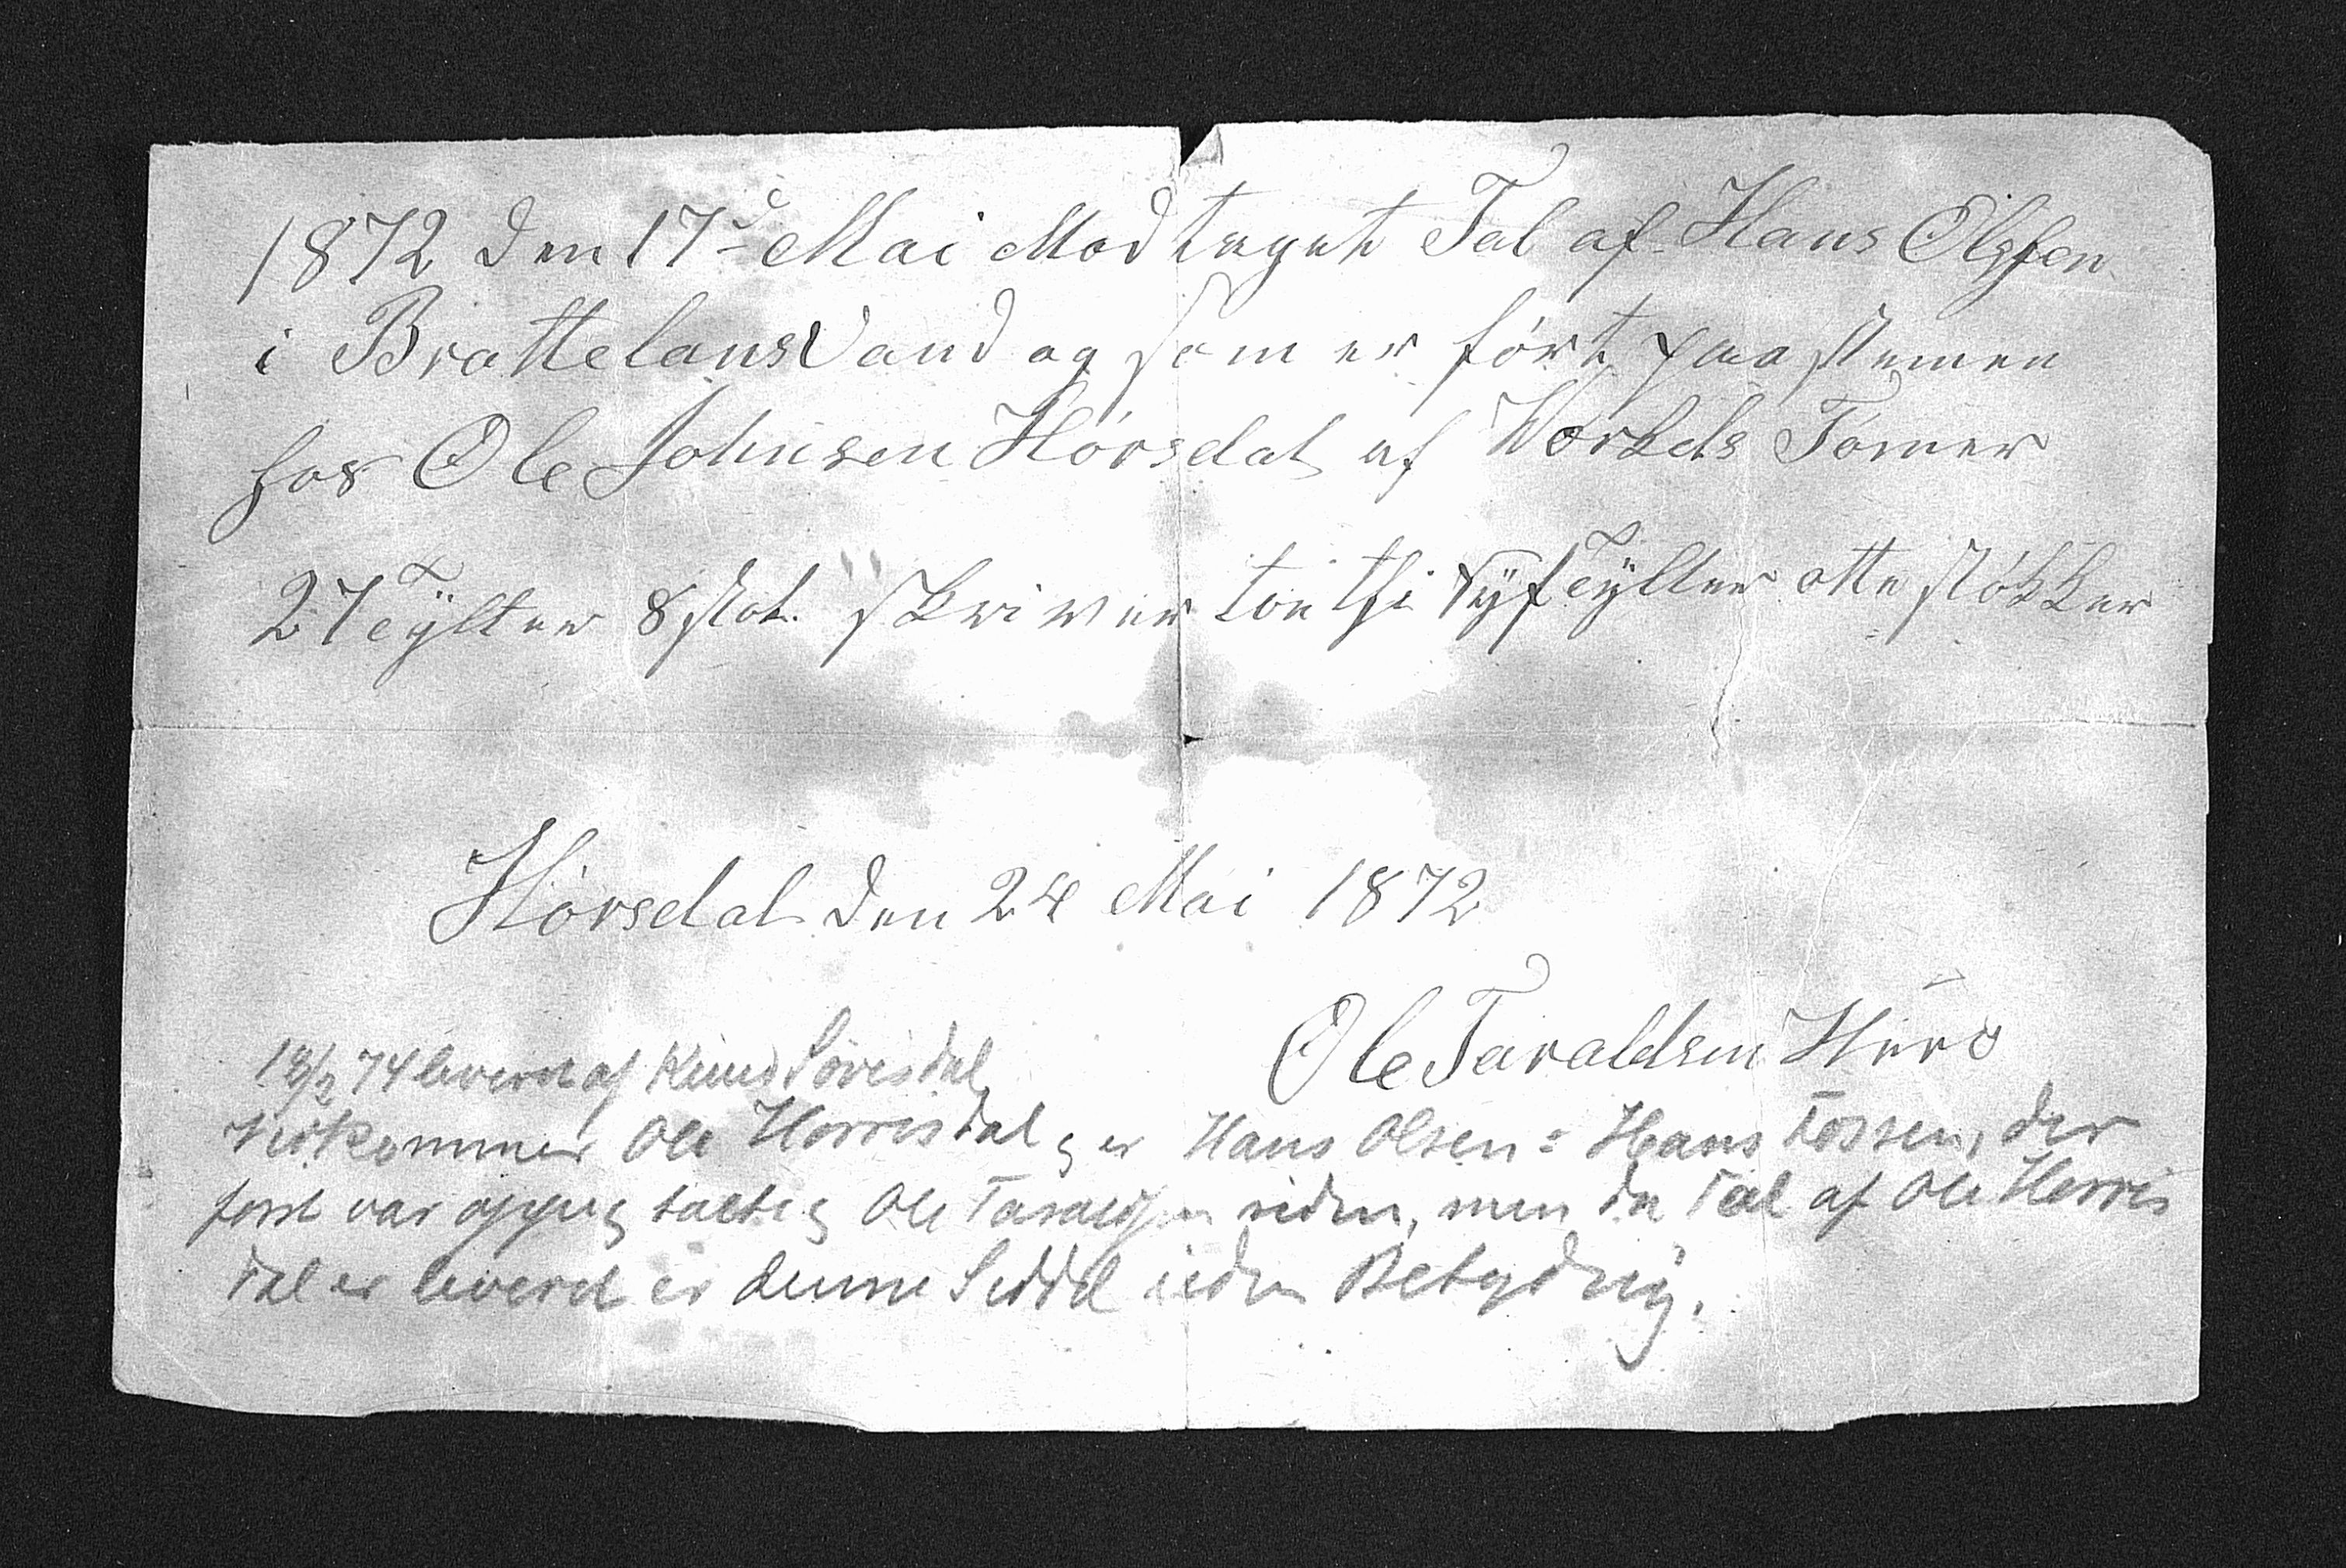 1872 den 17de Mai Modtaget Tal af Hans Olssen
i Brattelans Vand og som er ført paa stemen
hos Ole Johnsen Hörsdal af Worbds Tømer
27 Tÿlter 8 stok. skriwer tou thi syf Tÿlter otte støkker
Hörsdal den 24 Mai 1872
Ole Taraldsen Hürö
18/2 74 leveret af Knud Sörisdal
vedkommer Ole Horrisdal, er Hans Olsen = Hans Fossen, der
først var oppe og talte og Ole Taraldsen siden, men da Tal af Ole Horris
dal er leveret er denne Seddel uden Betydning.